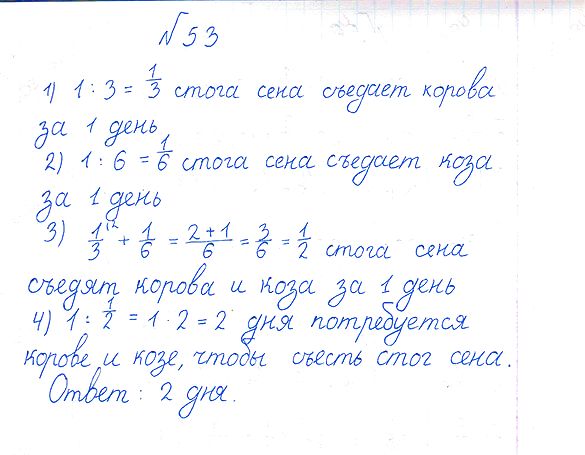 №53
1) 1 : 3 = 1/3 стога сена съедает корова
за 1 день
2) 1 : 6 = 1/6 стога сена съедает коза
за 1 день
3) 1/3^(2 + 1/6 = (2+1)/6 = 3/6 = 1/2 стога сена
съедят корова и коза за 1 день
4) 1 : 1/2 = 1 · 2 = 2 дня потребуется
корове и козе, чтобы съесть стог сена.
Ответ: 2 дня.